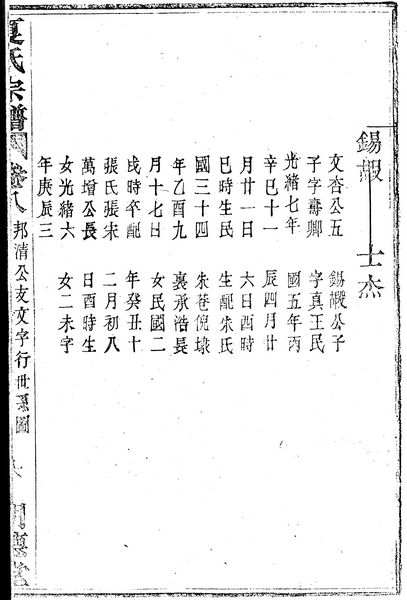 錫嘏
文杏公五
子字壽卿
光緒七年
辛巳十一
月廿一日
巳時生民
國三十四
年乙酉九
月十七日
戌時卒配
張氏張宋
萬增公長
女光緒六
年庚辰三
士杰
錫嘏公子
字真王民
國五年丙
辰四月廿
六日酉時
生配朱氏
朱巷倪埭
裏承浩長
女民國二
年癸丑十
二月初八
日酉時生
女二未字
夏氏宗譜
卷八
邦清公支文字行世系圖